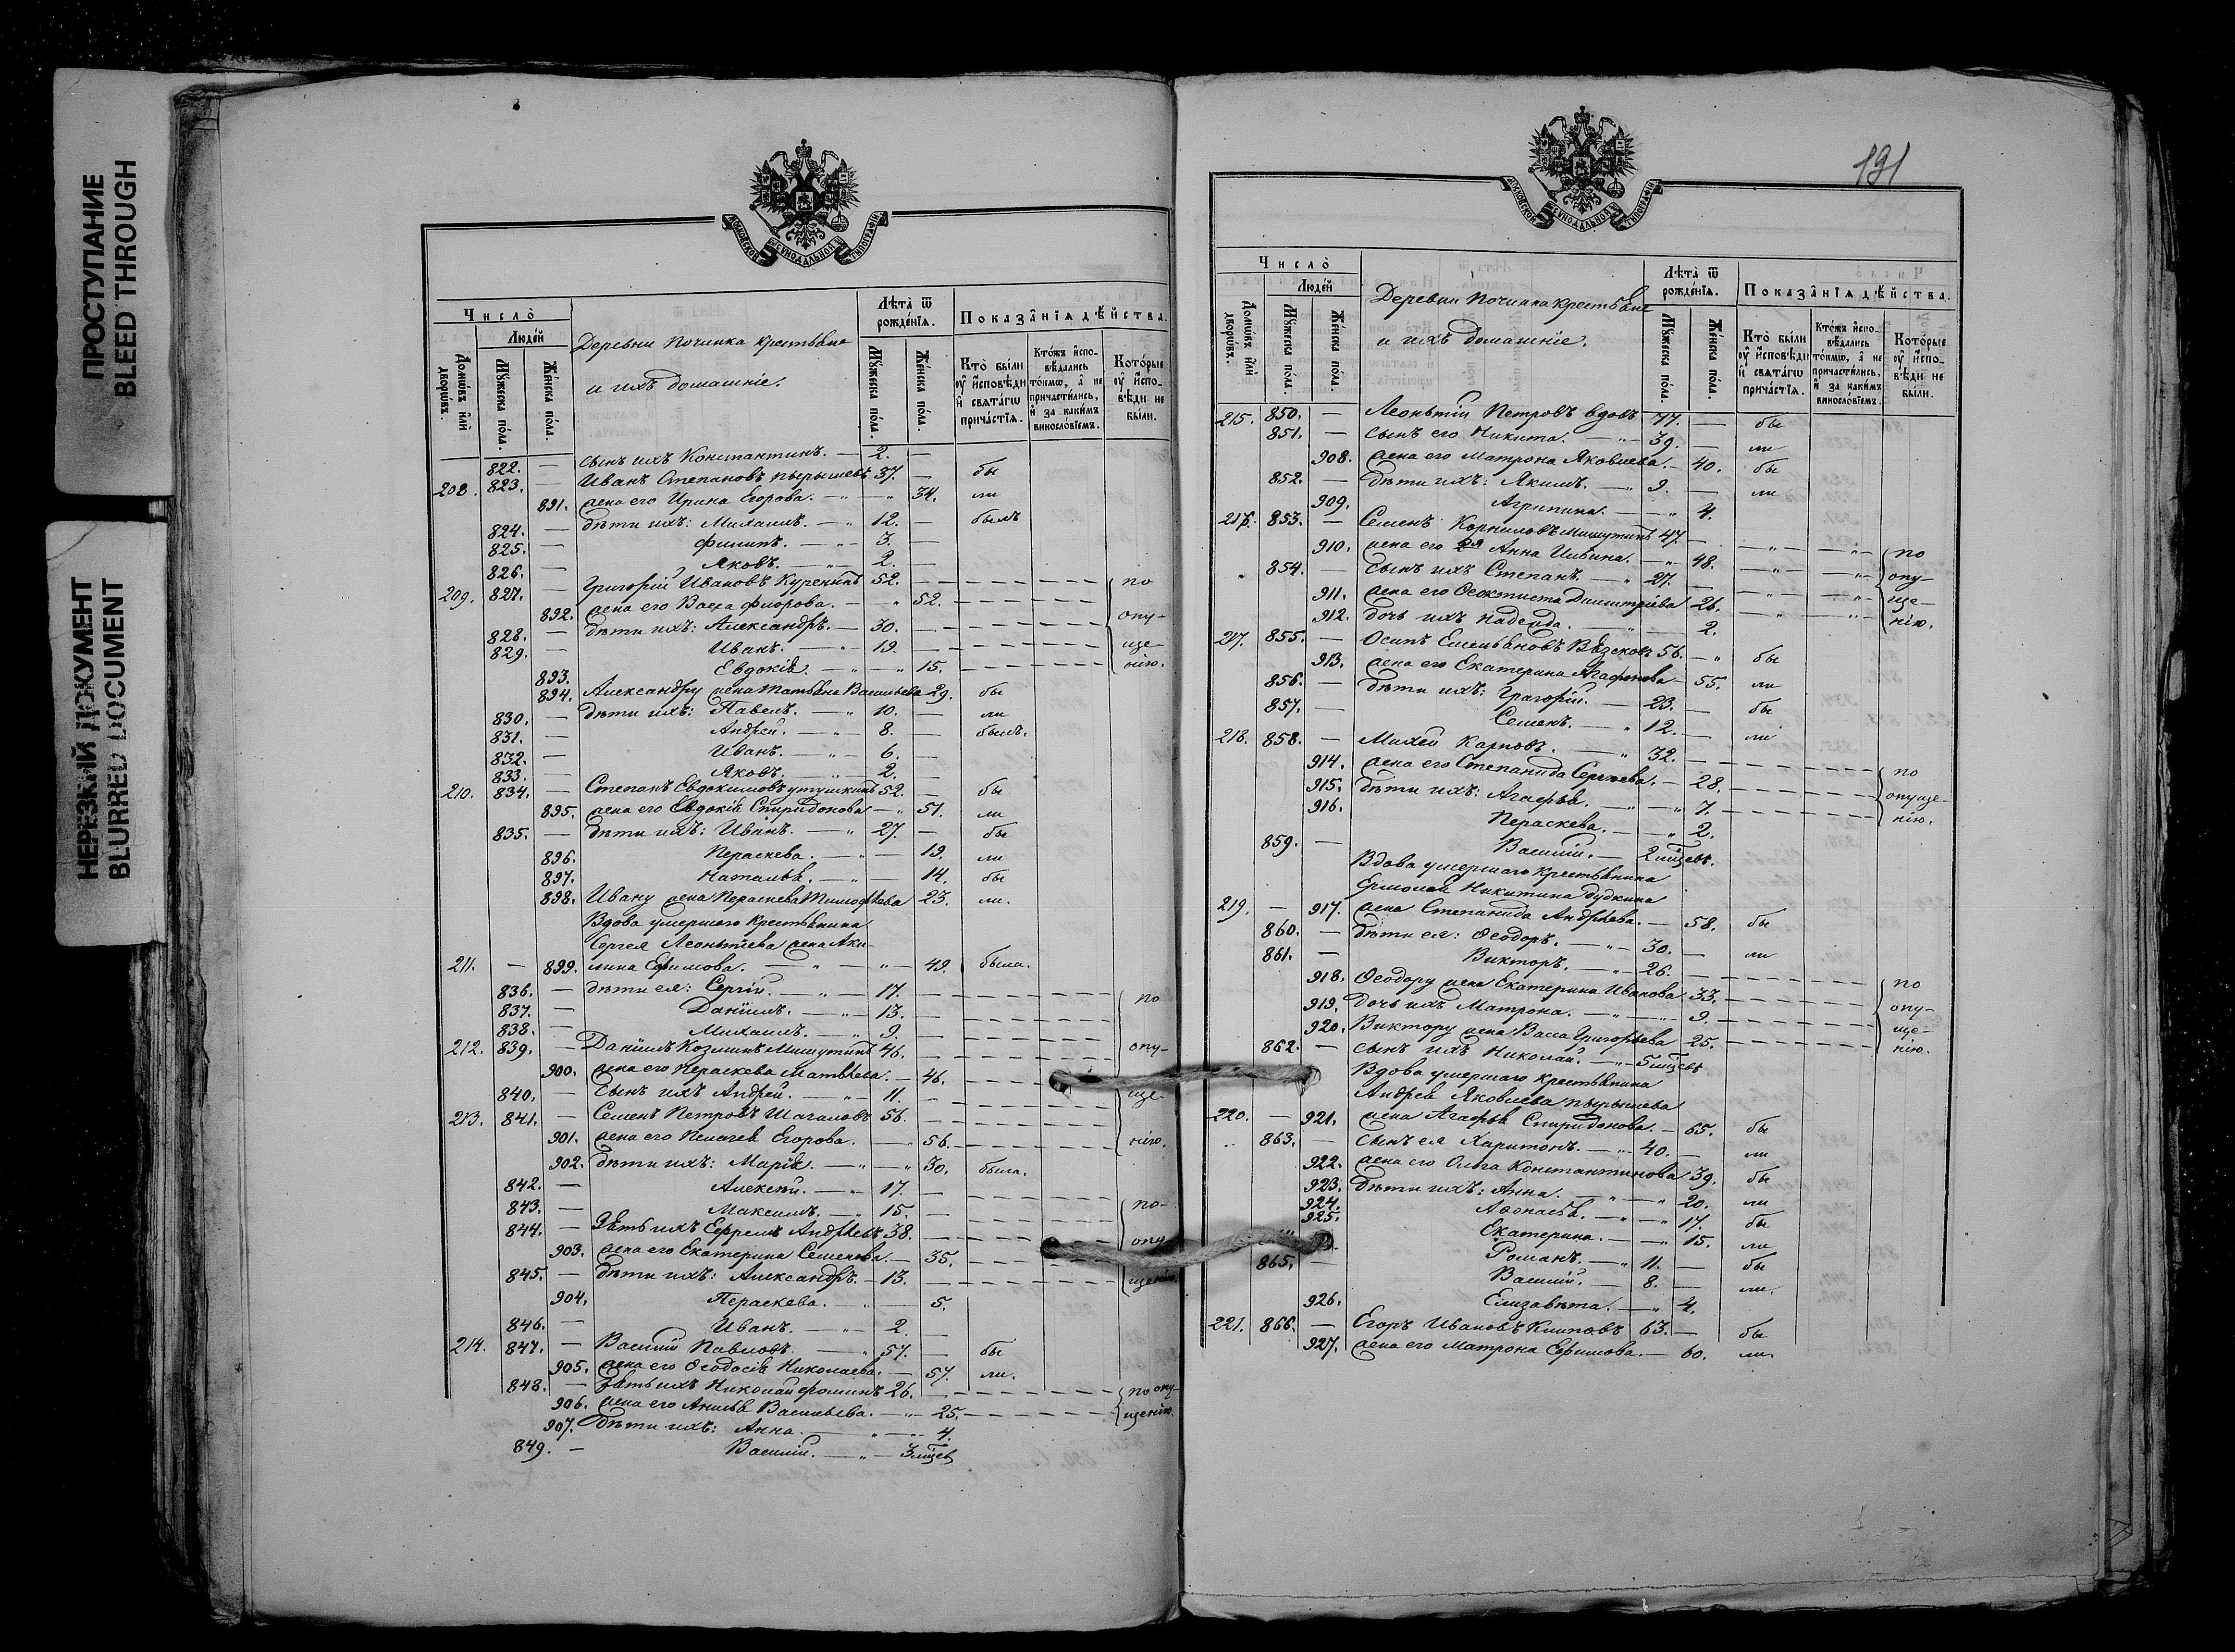 ПРОСТУПАНИЕ
BLEED THROUGH
НЕРЕЗКИЙ ДОКУМЕНТ
BLURRED DOCUMENT
МОСКОВСКОЙ СѴНОДАЛЬНОЙ ТИПОГРАФІИ
Число̀
Людей
Домѡвъ и҆лѝ дворѡвъ.
Мꙋжеска по́ла.
Же́нска по́ла.
Деревни Починка крестьяне
и ихъ домашніе.
Лѣта̀ ѿ рожде́нїѧ.
Мꙋжеска по́ла.
Же́нска по́ла.
Показа̂нїѧ дѣ́йства.
Кто̀ бы́ли оу҆ и҆сповѣди и҆ свѧта́гѡ прича́стїѧ.
Кто́жъ и҆сповѣдались то́кмѡ, а҆ не причасти́лись, и҆ за каки́мъ винословїемъ.
Кото́рые оу҆ и҆сповѣди не бы́ли.
822. — сынъ ихъ Константинъ. — 2. —
208. 823. — Иванъ Степановъ Пырышевъ 37. — бы
891. жена его Ирина Егорова. — " — " 34. ли
824. — дѣти ихъ: Михаилъ. — " 12. — былъ
825. — Филипъ. — " — 3. —
826. — Яковъ. — " — 2. —
209. 827. — Григорій Ивановъ Куренинъ 52. — по
892. жена его Васса Фирова. — " 52. —
828. — дѣти ихъ: Александръ. — 30. — опу-
829. — Иванъ. — " — 19. — ще-
893. Евдокія. — " — " 15. — нію.
894. Александру жена Татьяна Васильева 29. бы
830. — дѣти ихъ: Павелъ. — " 10. — ли
831. — Андрей. — " 8. — былъ.
832. — Иванъ. — " — 6. —
833. — Яковъ. — " — 2. —
210. 834. — Степанъ Евдокимовъ Утушкинъ 52. — бы
895. жена его Евдокія Спиридонова — " 51. ли
835. — дѣти ихъ: Иванъ. — " 27. — бы
896. Пераскева. — " — 19. ли
897. Наталья. — " — 14. бы
898. Ивану жена Пераскева Тимофѣева 23. ли.
Вдова умершаго крестьянина
Сергея Леонтьева жена Аки-
211. — 899. лина Ефимова. — " — " — 49. была.
836. — дѣти ея: Сергій. — " — 17. — по
837. — Даніилъ. — " — 13. —
838. — Михаилъ. — " 9. —
212. 839. — Даніилъ Козминъ Мишутинъ 46. — опу-
900. жена его Пераскева Матвѣева. — 46. —
840. — сынъ ихъ Андрей. — " — 11. — ще-
213. 841. — Семенъ Петровъ Шагаловъ 56. —
901. жена его Пелагея Егорова. — " 56. — нію.
902. дѣти ихъ: Марія. — " — " 30. была.
842. — Алексѣй. — " — 17. —
843. — Максимъ. — " 15. — по-
844. — Зять ихъ Ефремъ Андрѣевъ 38. — опу-
903. жена его Екатерина Семенова. — 35. —
845. — дѣти ихъ: Александръ. — 13. — щенію.
904. Пераскева. — " — 5.
846. — Иванъ. — " — 2. —
214. 847. — Василій Павловъ. — " 57. — бы
905. жена его Ѳеодосія Николаева. — 57. ли.
848. — Зять ихъ Николай Фоминъ 26. — по опу-
906. жена его Анисья Васильева. — " — 25. — щенію.
907. дѣти ихъ: Анна. — " — " — 4.
849. — Василій. — " — 3 мѣсяц
131
МОСКОВСКОЙ СѴНОДАЛЬНОЙ ТИПОГРАФІИ
Число̀
Людей
Домѡвъ и҆лѝ дворѡвъ.
Мꙋжеска по́ла.
Же́нска по́ла.
Деревни Починка крестьяне
и ихъ домашніе.
Лѣта̀ ѿ рожде́нїѧ.
Мꙋжеска по́ла.
Же́нска по́ла.
Показа̂нїѧ дѣ́йства.
Кто̀ бы́ли оу҆ и҆сповѣди и҆ свѧта́гѡ прича́стїѧ.
Кто́жъ и҆сповѣдались то́кмѡ, а҆ не причасти́лись, и҆ за каки́мъ винословїемъ.
Кото́рые оу҆ и҆сповѣди не бы́ли.
215. 850. — Леонтій Петровъ вдовъ 77. — бы
851. — сынъ его Никита. — " — 39. — ли
908. жена его Матрона Яковлева. — 40. бы
852. — дѣти ихъ: Якимъ. — " 9. — ли
909. Агрипина. — " 4.
216. 853. — Семенъ Корниловъ Мишутинъ 47. — по
910. жена его Анна Ильина. — " 48. — " — " —
854. — сынъ ихъ Степанъ. — " 27. — опу-
911. жена его Ѳеоктиста Димитріева 26. — ще-
912. дочь ихъ Надежда. — " — 2. — нію.
217. 855. — Осипъ Емельяновъ Вязсковъ 56. — " бы
913. жена его Екатерина Агафонова — 55. ли
856. — дѣти ихъ: Григорій. — 23. — бы
857. — Семенъ. — " 12. — ли
218. 858. — Михей Карповъ. — " 32. — по
914. жена его Степанида Сергѣева. — 28. —
915. дѣти ихъ: Агафья. — " — " 7. — опуще-
916. Пераскева. — " 2. нію.
859. — Василій. — 2 мѣсяц.
Вдова умершаго крестьянина
Ермолая Никитина Дудкина
219. — 917. жена Степанида Андрѣева. — 58. бы
860. — дѣти ея: Ѳеодоръ. — " — 30. — ли
861. — Викторъ. — " — 26. —
918. Ѳеодору жена Екатерина Иванова 33. — по
919. Дочь ихъ Матрона. — " — " — 9. — опу-
920. Виктору жена Васса Григорьева 25. — ще-
862. — сынъ ихъ Николай. — " — 5 мѣсяц. нію.
Вдова умершаго крестьянина
Андрея Яковлева Пырышева
220. — 921. жена Агафья Спиридонова. — 65. бы
863. — сынъ ея Харитонъ. — " — 40. — ли
922. жена его Ольга Константинова 39. бы
923. дѣти ихъ: Анна. — " — " 20. ли
924. Аѳонасья. — " — " 17. бы
925. Екатерина. — " 15. ли
Романъ. — " 11. — бы
865. — Василій. — 8. — ли.
926. Елизавета. — " 4.
221. 866. — Егоръ Ивановъ Климовъ 63. — бы
927. жена его Матрона Ефимова. — 60. ли.